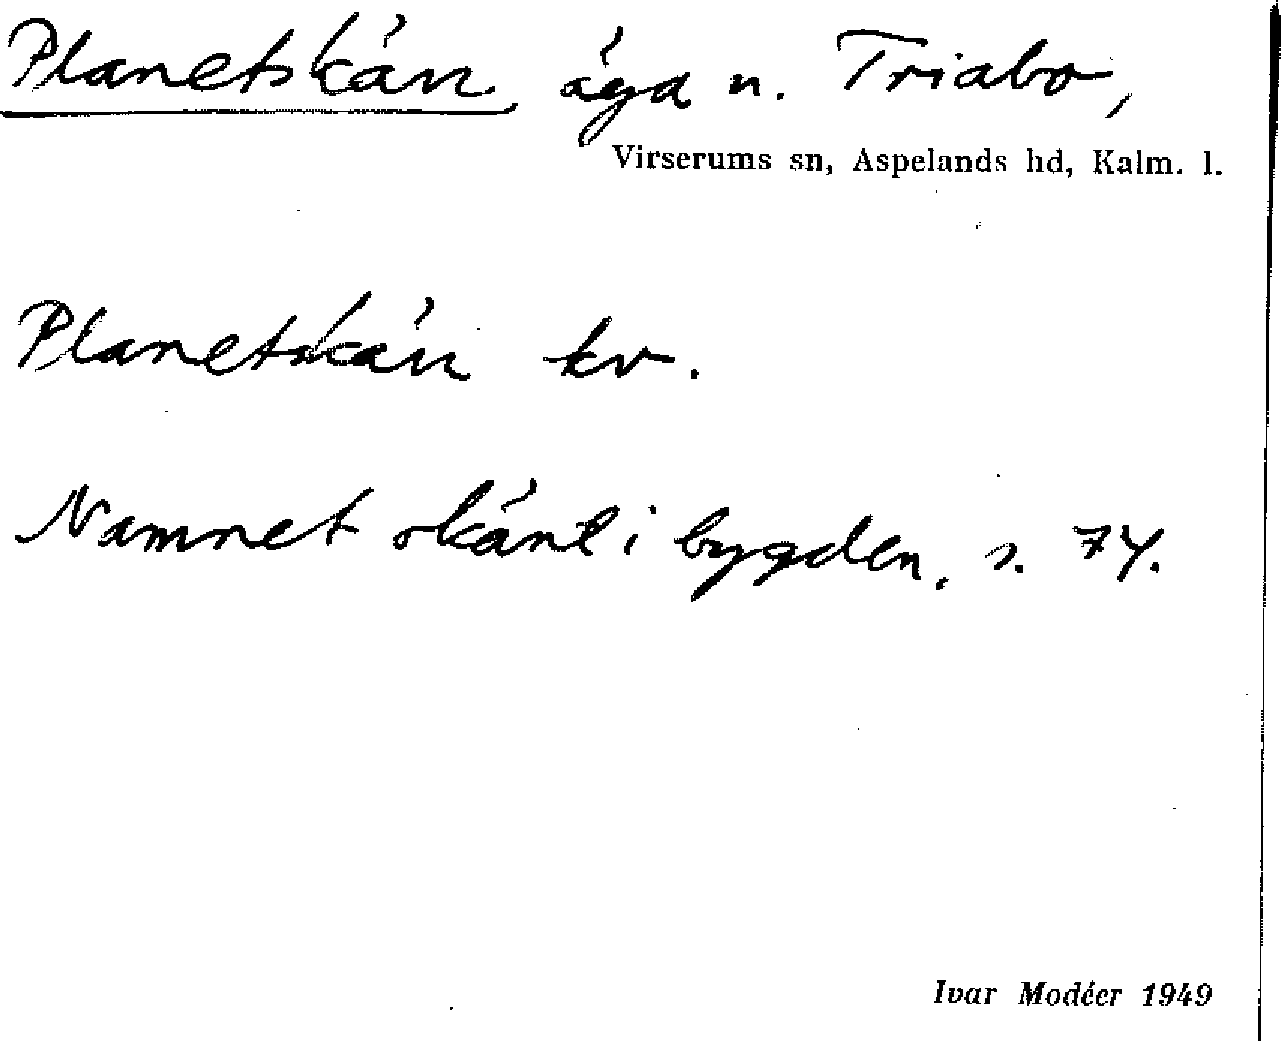 Planetskärr, äga n. Triabo,
Virserums sn, Aspelands hd, Kalm. l.
Planetskärr kv.
Namnet okänt i bygden. s. 74.
Ivar Modéer 1949